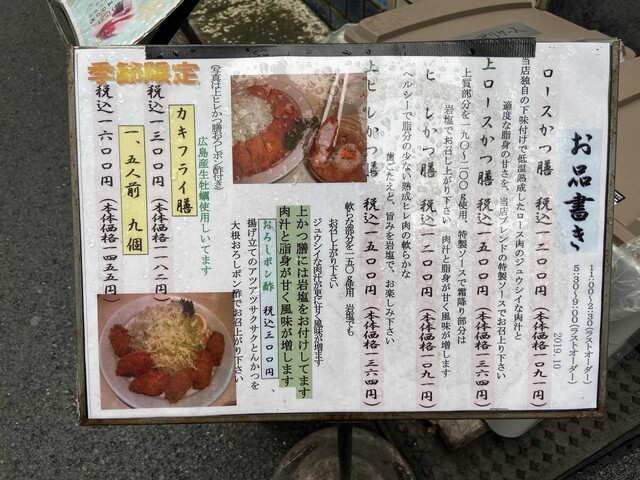 お品書き
11:00~2:30(ラストオーダー)
5:30~9:00(ラストオーダー)
2019.10
ロースかつ膳 税込一二〇〇円(本体価格一〇九一円)
当店独自の下味付けで低温熟成したロース肉のジュウシイな肉汁と
適度な脂身の甘さを、当店ブレンドの特製ソースでお召上り下さい
上ロースかつ膳 税込一五〇〇円(本体価格一三六四円)
上質部分を一九〇~二〇〇g使用、特製ソースで霜降り部分は
岩塩でお召し上がり下さい 肉汁と脂身が甘く風味が増します
ヒレかつ膳 税込一二〇〇円(本体価格一〇九一円)
ヘルシーで脂分の少ない熟成ヒレ肉の軟らかな
歯ごたえと、旨みを岩塩で、お楽しみ下さい
上ヒレかつ膳 税込一五〇〇円(本体価格一三六四円)
軟らな部分を一五〇g使用 岩塩でも
お召し上がり下さい
ジュウシイな肉汁が更に甘く風味が増ます
上かつ膳には岩塩をお付けしてます
肉汁と脂身が甘く風味が増します
おろしポン酢 税込三〇〇円、
揚げ立てのアツアツサクサクとんかつを
大根おろしポン酢でお召上がり下さい
(写真は上ヒレかつ膳おろしポン酢付き)
広島産生牡蠣使用しいてます
カキフライ膳
税込一三〇〇円(本体価格一一八二円)
一、五人前 九個
季節限定
税込一六〇〇円(本体価格一四五五円)